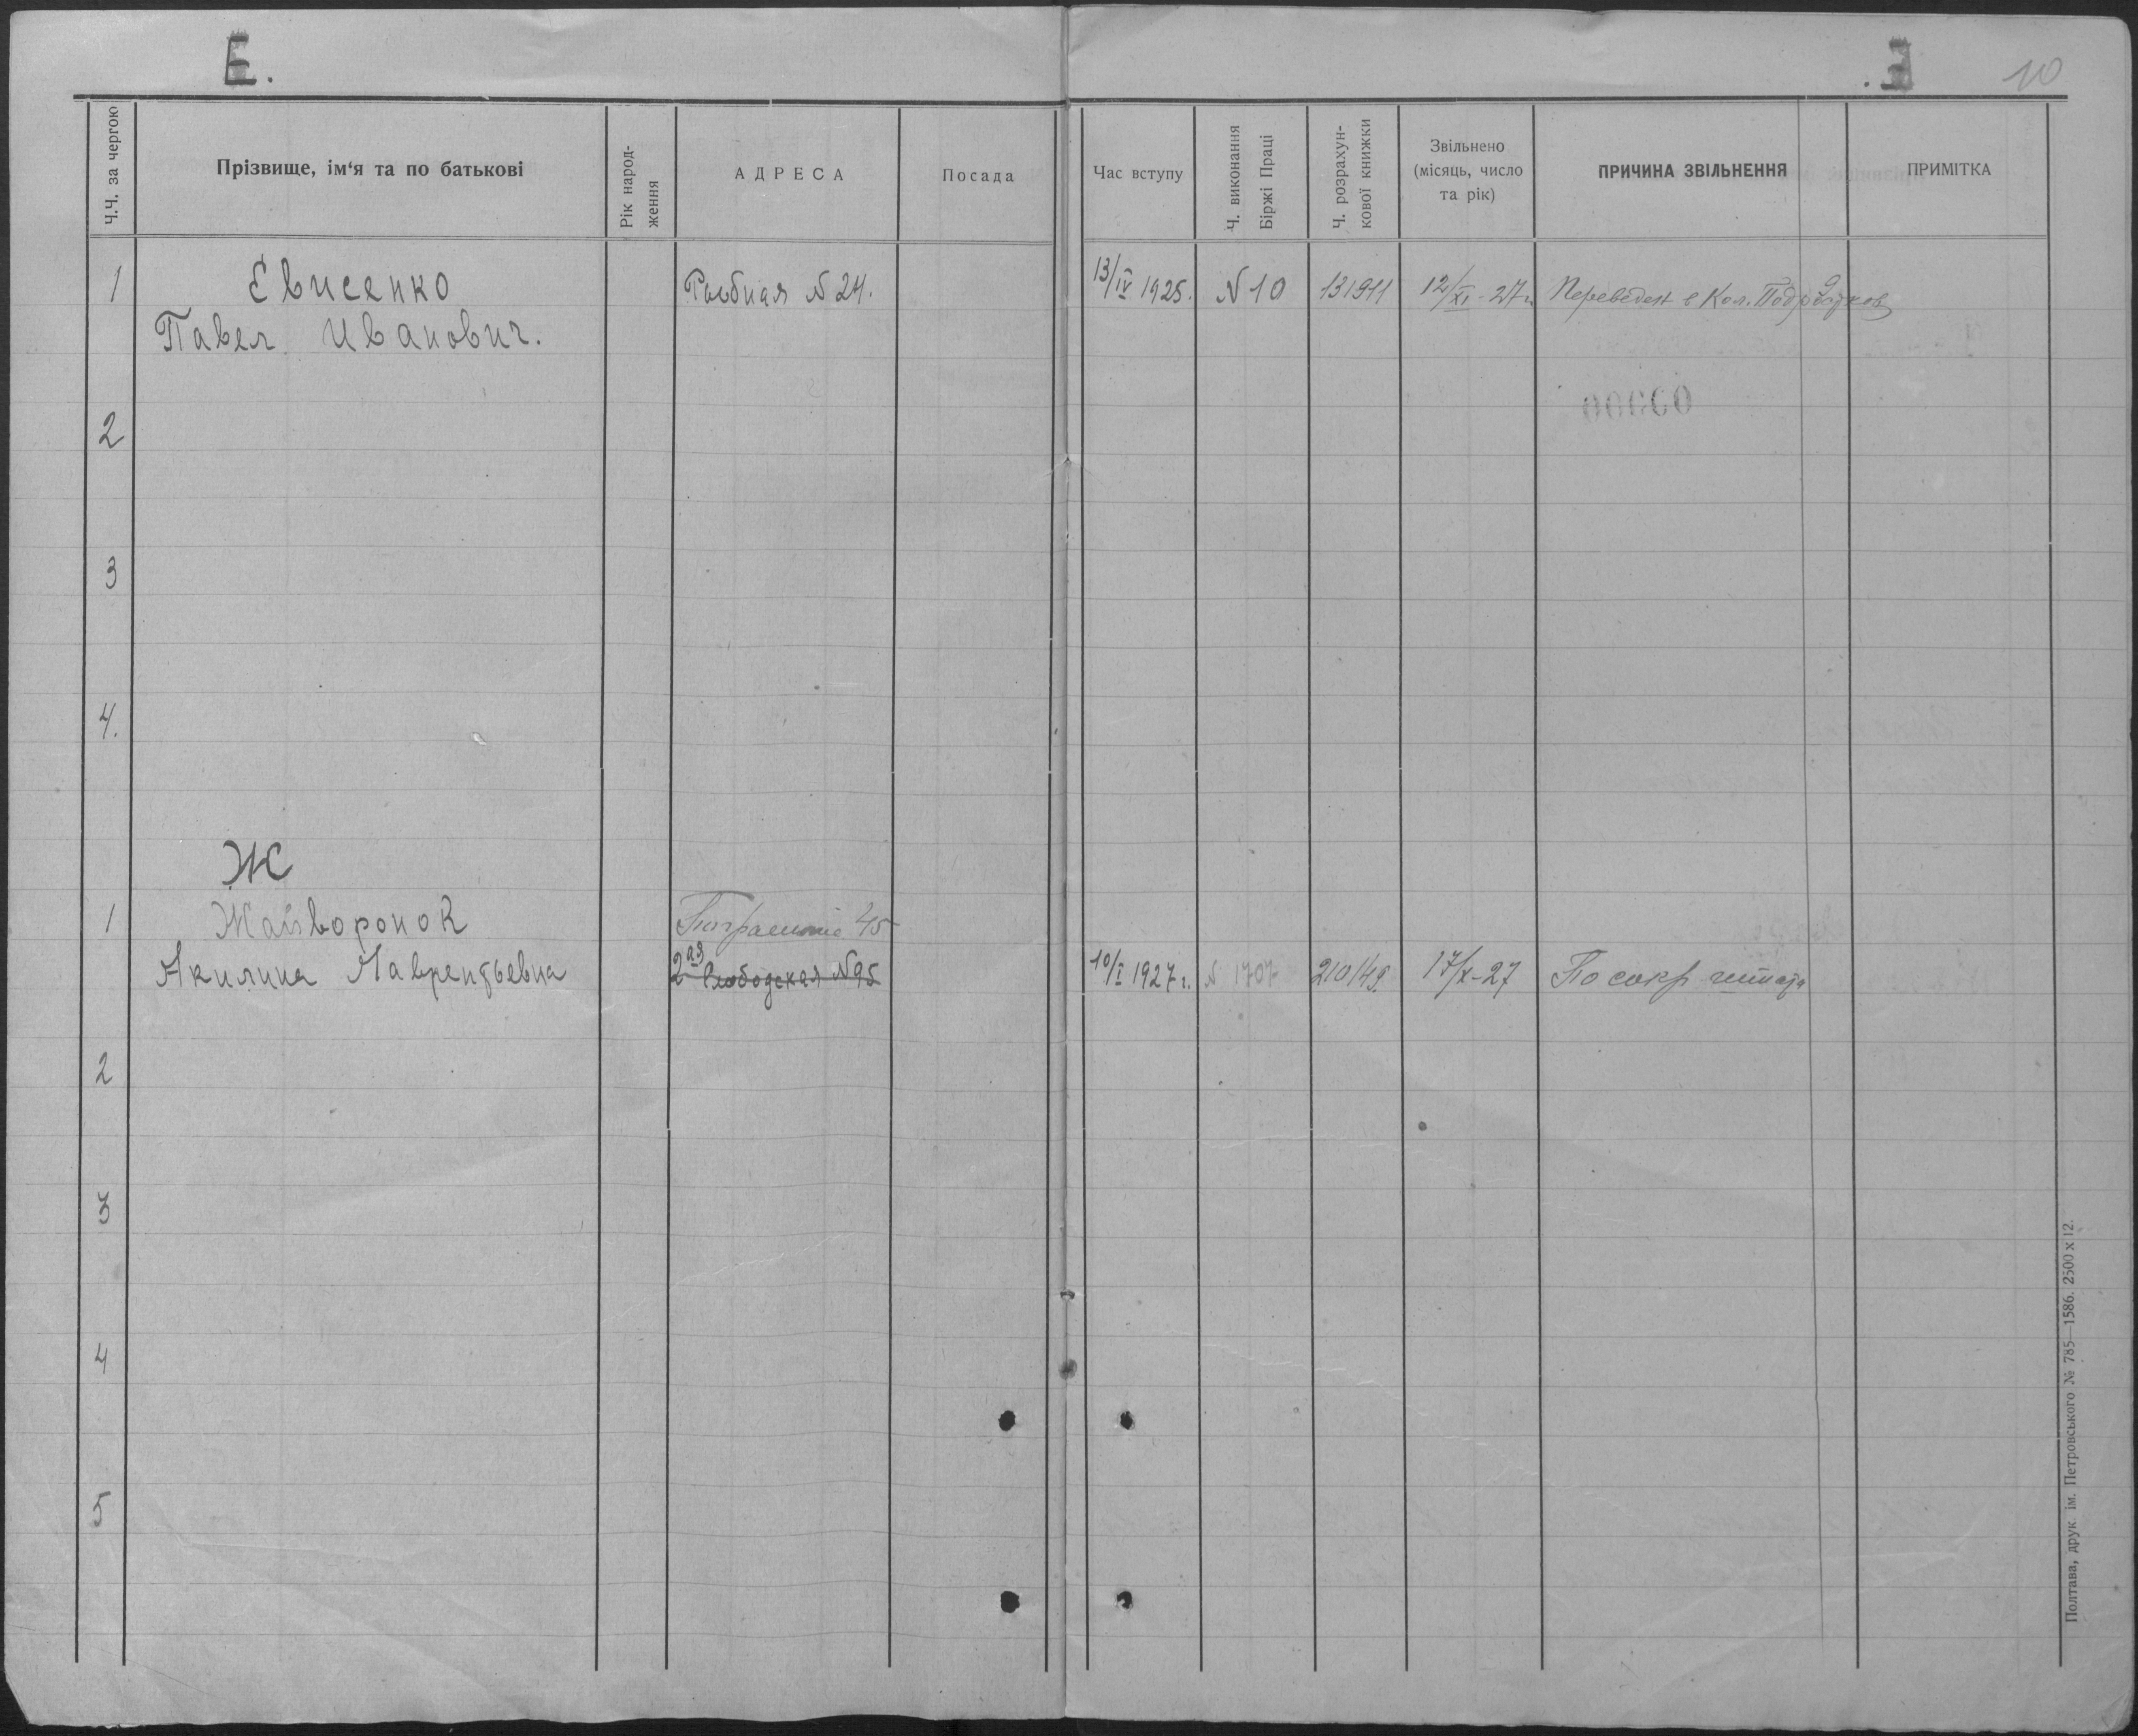 Е.
10
Ч.Ч. за чергою
Прізвище, ім'я та по батькові
Рік народ-
ження
АДРЕСА
Посада
Час вступу
Ч. виконання
Біржі Праці
Ч. розрахун-
кової книжки
Звільнено
(місяць, число
та рік)
ПРИЧИНА ЗВІЛЬНЕННЯ
ПРИМІТКА
1 Євисенко N 24. 13/IV 1925. N 10 131911 12/XI-27г. Переведен в Кол. Подростков
Павел Иванович.
2
3
4.
Ж
1 Жайворонок 45
Акилина Лаврентьевна 2ая Слободская N 95 10/I 1927г. N 1707 210149. 17/X-27 По сокр штата
2
3
4
5
Полтава, друк. ім. Петровського № 785—1586. 2500 x 12.